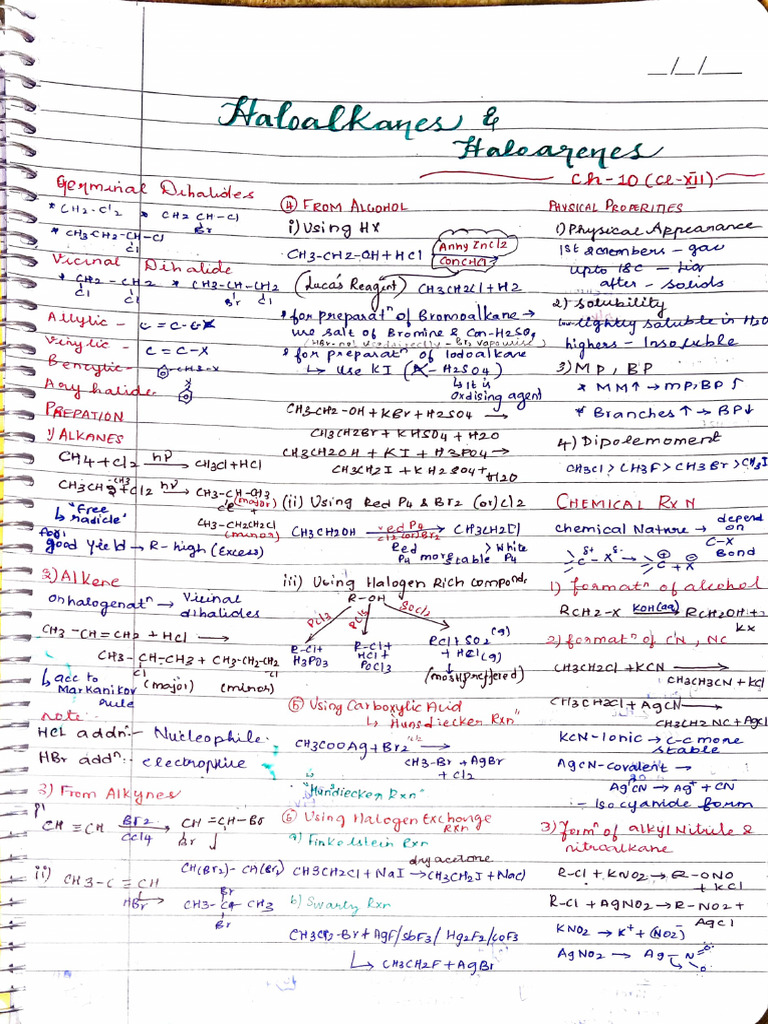 __/__/____
Haloalkanes &
Haloarenes
Ch-10 (Cl-XII)
Germinal Dihalides
* CH2-Cl2 * CH2 CH-Cl
Br
* CH3-CH2-CH-Cl
Cl
Vicinal Dihalide
* CH2-CH2 * CH3-CH-CH2
Cl Cl Br Cl
Allylic - C=C-C-X
Vinylic - C=C-X
Benzylic- CH2-X
Aary halide X
PREPATION
1) ALKANES
CH4+Cl2 hν→ CH3Cl+HCl
CH3CH2+Cl2 hν→ CH3-CH-CH3
Cl (major)
CH3-CH2CH2Cl
(minor)
↳ "free
radicle"
for:
good Yield → R-high (Excess)
2) Alkene
On halogenatⁿ → Vicinal
dihalides
CH3-CH=CH2 + HCl →
CH3-CH-CH3 + CH3-CH2-CH2
Cl Cl
(major) (minor)
↳ acc to
Markanikov
rule
note
HCl addn:- Nucleophile
HBr addⁿ:- electrophile
3) From Alkynes
i)
CH≡CH Br2→ CH=CH-Br
CCl4 Br
CH(Br2)-CH(Br2)
ii) CH3-C≡CH
HBr→ CH3-C-CH3
Br
Br
④ FROM ALCOHOL
i) Using HX
CH3-CH2-OH+HCl Anhy ZnCl2
Con HCl
(Lucas Reagent) CH3CH2Cl+H2
* for preparatⁿ of Bromoalkane →
use salt of Bromine & Con-H2SO4
(HBr- not used directly - Br2 vapourise)
* for preparatⁿ of Iodoalkane
↳ Use KI (X-H2SO4)
↳ It is
oxdising agent
CH3-CH2-OH+KBr+H2SO4 →
CH3CH2Br+KHSO4+H2O
CH3CH2OH+KI+H3PO4→
CH3CH2I+KH2SO4+H2O
(ii) Using Red P4 & Br2 (or) Cl2
CH3CH2OH red P4→ CH3CH2Cl
Cl2 (or) Br2
Red P4 more stable > White P4
iii) Using Halogen Rich Compond,
R-OH
PCl3 PCl5 SOCl2
R-Cl+
H3PO3
R-Cl+
HCl+
POCl3
RCl+SO2(g)
+HCl(g)
(most preffered)
⑤ Using Carboxylic Acid
↳ Hunsdiecker Rxn
CH3COOAg+Br2 →
CH3-Br+AgBr
+Cl2
"Hundiecker Rxn"
⑥ Using Halogen Exchange
Rxn
a) Finkelstein Rxn
dry acetone
CH3CH2Cl+NaI→CH3CH2I+NaCl
b) Swarly Rxn
CH3CH2-Br+AgF/SbF3/Hg2F2/CoF3
↳ CH3CH2F+AgBr
PHYSICAL PROPERITIES
1) Physical Appearance
1st 2 members - gas
upto 18C - liq
after - solids
2) Solubility
low-slightly soluble in H2O
highers - Insoluble
3) MP, BP
* MM↑→ MP, BP↑
* Branches↑→ BP↓
4) Dipole moment
CH3Cl>CH3F>CH3Br>CH3I
CHEMICAL RXN
chemical Nature → depend
on
C-X
Bond
C-X δ+ δ- → C+ X-
1) formatⁿ of alcohol
RCH2-X KOH(aq)→ RCH2OH+
KX
2) formatⁿ of CN, NC
CH3CH2Cl+KCN →
CH3CH3CN+KCl
CH3CH2Cl+AgCN→
CH3CH2NC+AgCl
KCN-Ionic → C-C more
stable
AgCN-covalent→
AgCN→Ag+ + CN
- Isocyanide form
3) formⁿ of alkyl Nitrile &
nitroalkane
R-Cl+KNO2→R-ONO
+KCl
R-Cl+AgNO2→R-NO2+
AgCl
KNO2→K++(NO2)-
AgNO2→ Ag-N=O
O